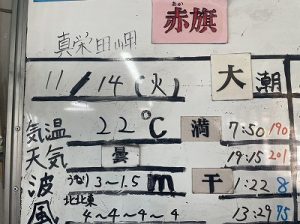 赤旗
真栄田岬
11/14(火) 大潮
気温 22℃ 満 7:50 190
天気 曇 19:15 201
波 うなり3~1.5m 干 1:22 8
風 北北東 4~4~4~4 13:29 95